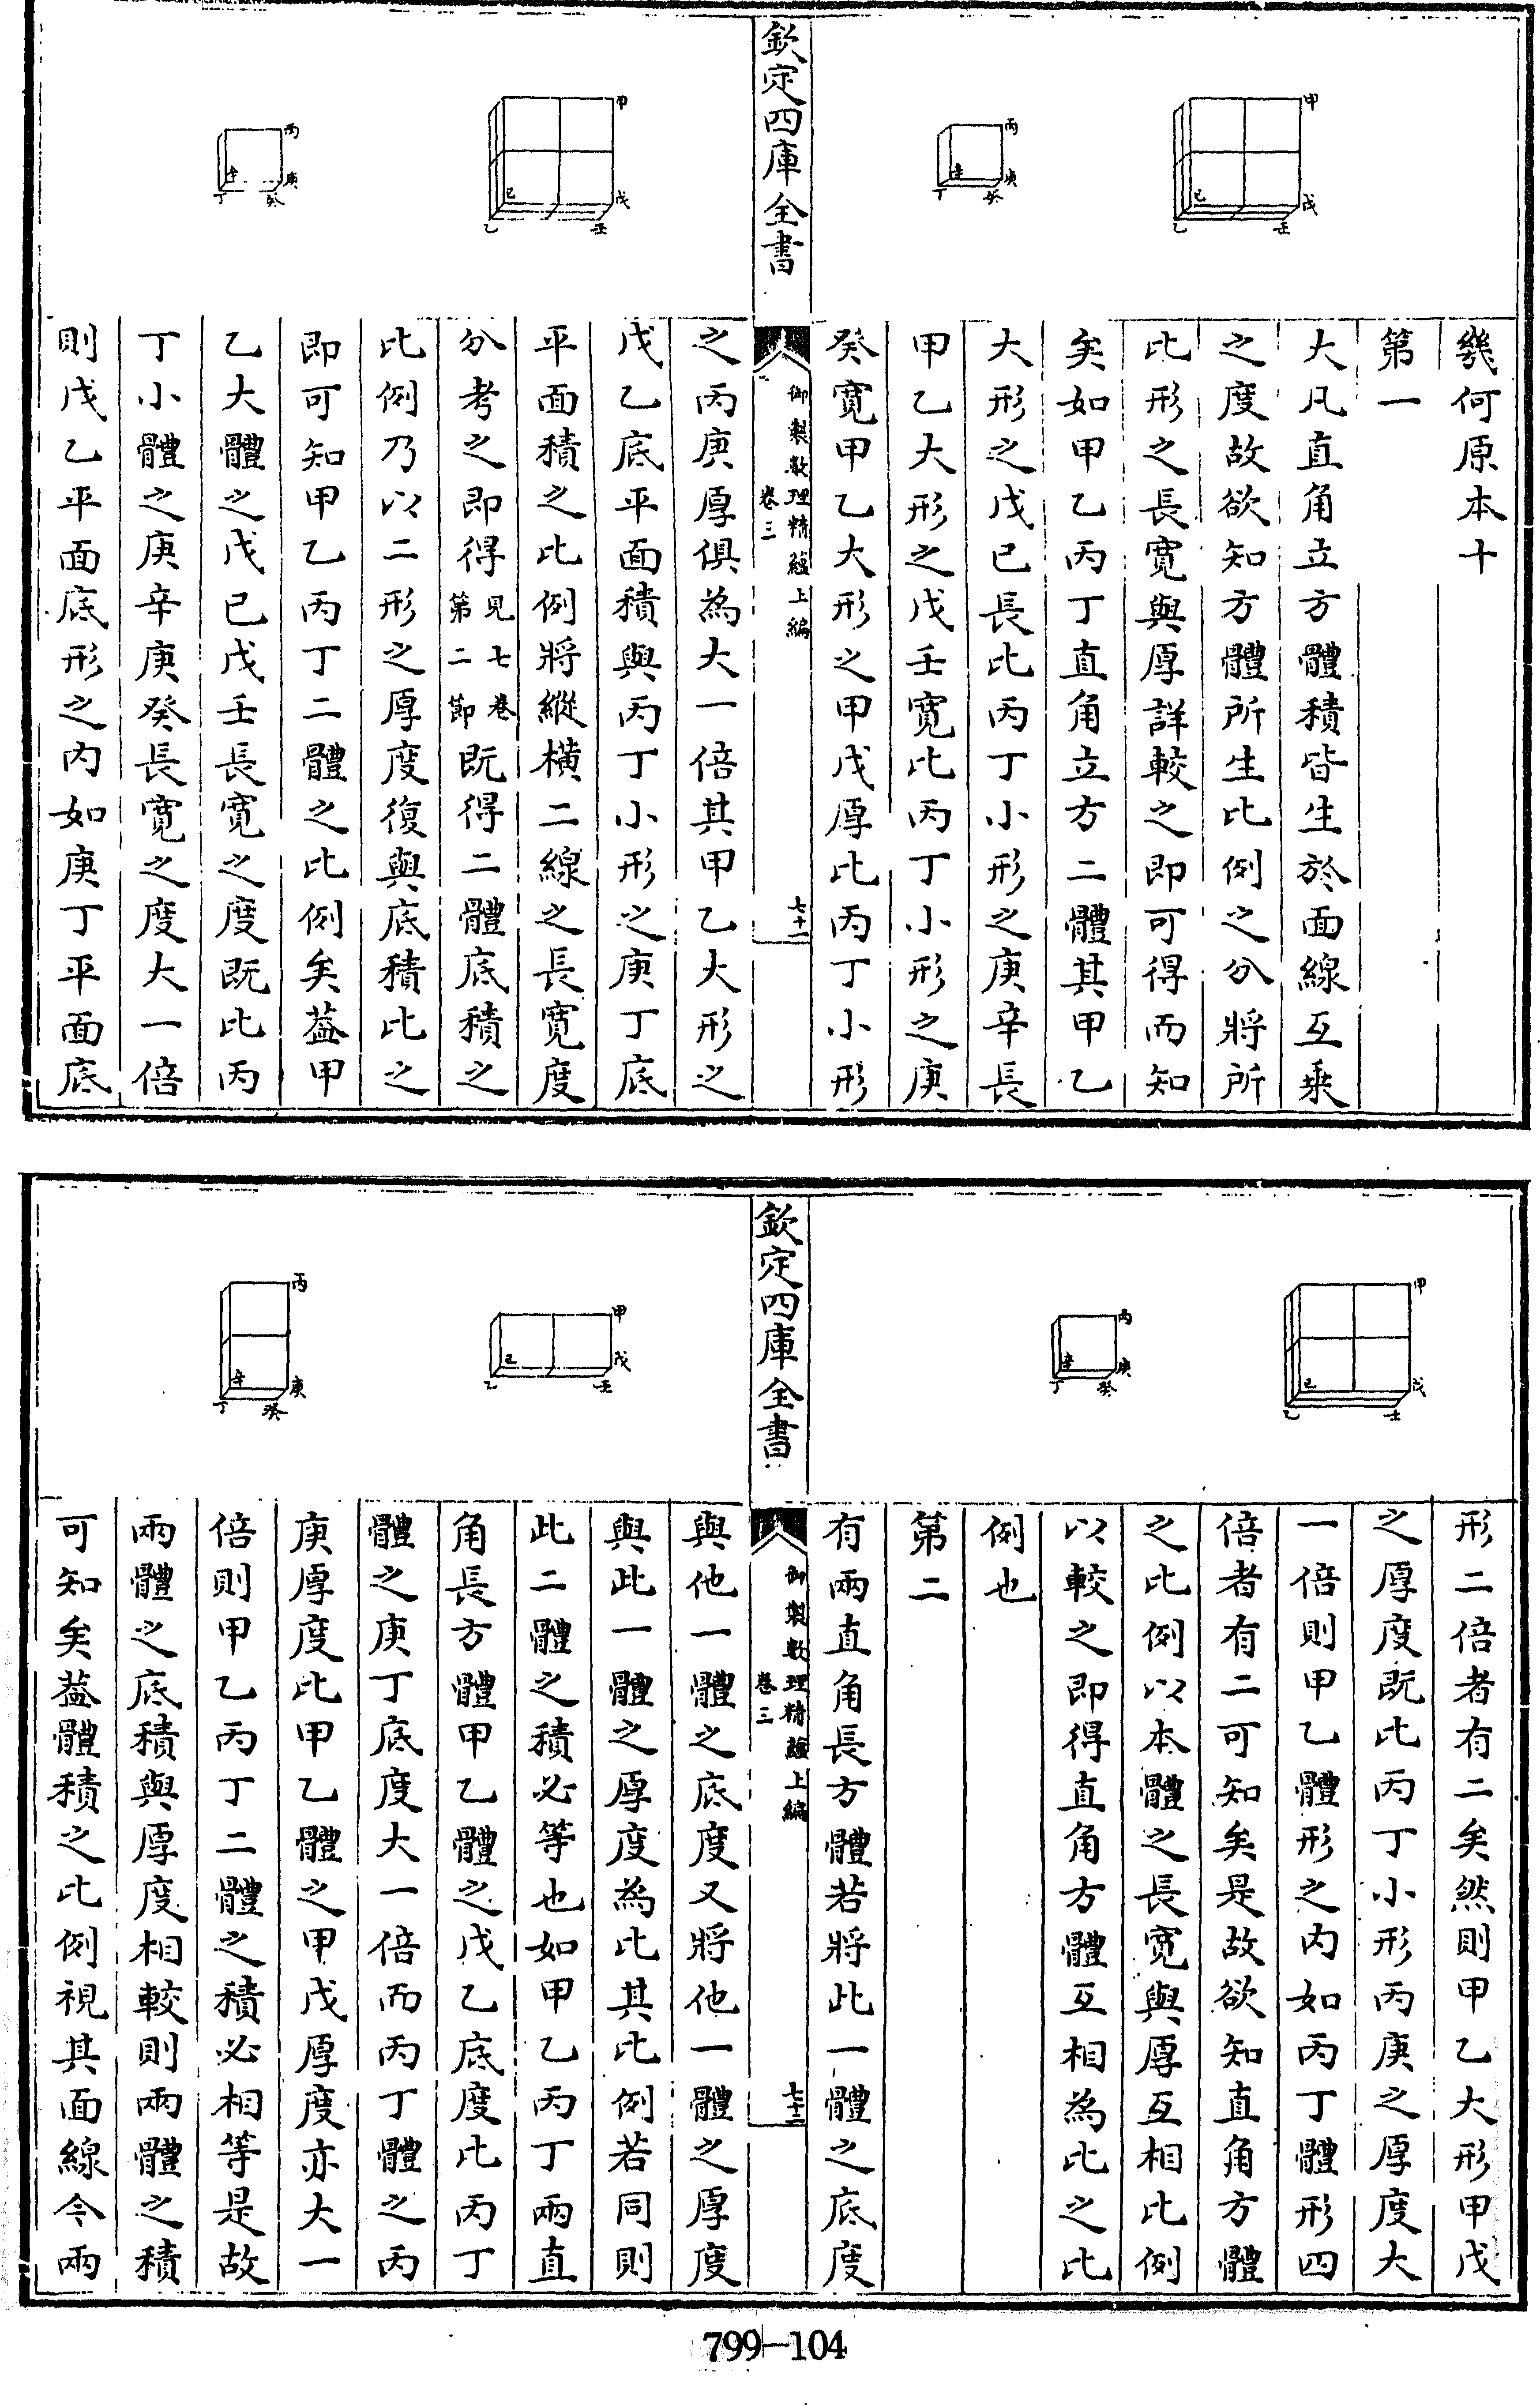 幾何原本十
第一
大凡直角立方體積皆生於面線互乘
之度故欲知方體所生比例之分將所
比形之長寛與厚詳較之即可得而知
矣如甲乙丙丁直角立方二體其甲乙
大形之戊己長比丙丁小形之庚辛長
甲乙大形之戊壬寛比丙丁小形之庚
癸寛甲乙大形之甲戊厚比丙丁小形
甲
戊
己
乙
壬
丙
庚
辛
丁
癸
欽定四庫全書
御製數理精蘊上編
卷三
七十一
之丙庚厚俱為大一倍其甲乙大形之
戊乙底平面積與丙丁小形之庚丁底
平面積之比例將縱横二線之長寛度
分考之即得見七卷第二節既得二體底積之
比例乃以二形之厚度復與底積比之
即可知甲乙丙丁二體之比例矣葢甲
乙大體之戊己戊壬長寛之度既比丙
丁小體之庚辛庚癸長寛之度大一倍
則戊乙平面底形之内如庚丁平面底
甲
戊
己
乙
壬
丙
庚
辛
丁
癸
形二倍者有二矣然則甲乙大形甲戊
之厚度既比丙丁小形丙庚之厚度大
一倍則甲乙體形之内如丙丁體形四
倍者有二可知矣是故欲知直角方體
之比例以本體之長寛與厚互相比例
以較之即得直角方體互相為比之比
例也
第二
有兩直角長方體若將此一體之底度
甲
戊
己
乙
壬
丙
庚
辛
丁
癸
欽定四庫全書
御製數理精蘊上編
卷三
七十二
與他一體之底度又將他一體之厚度
與此一體之厚度為比其比例若同則
此二體之積必等也如甲乙丙丁兩直
角長方體甲乙體之戊乙底度比丙丁
體之庚丁底度大一倍而丙丁體之丙
庚厚度比甲乙體之甲戊厚度亦大一
倍則甲乙丙丁二體之積必相等是故
兩體之底積與厚度相較則兩體之積
可知矣葢體積之比例視其面線今兩
甲
戊
己
乙
壬
丙
庚
辛
丁
癸
799-104